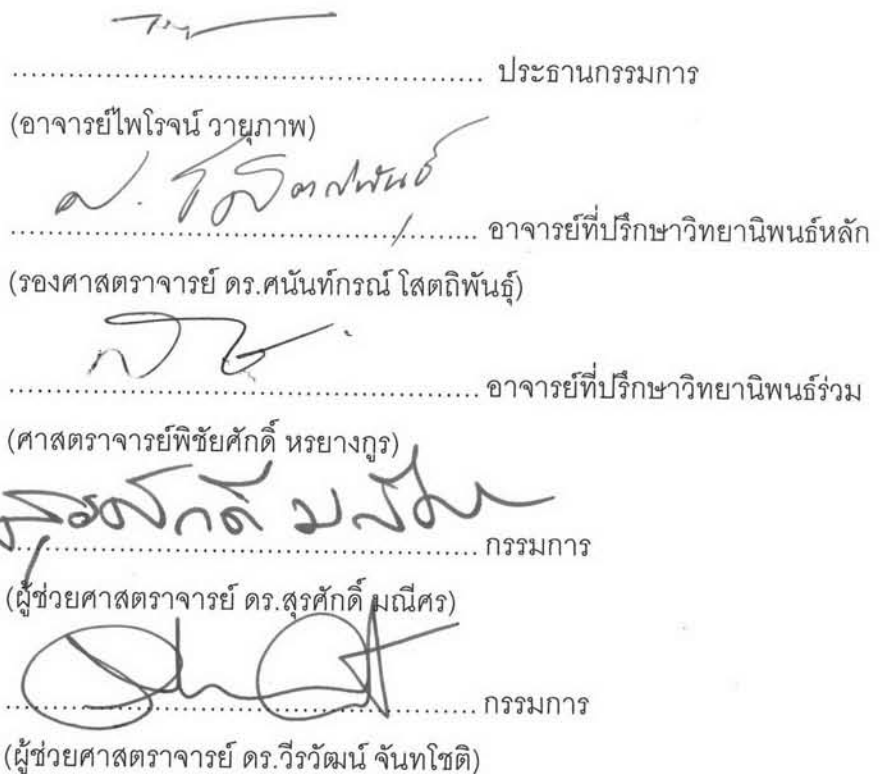 ................................................ ประธานกรรมการ
(อาจารย์ไพโรจน์ วายุภาพ)
ศ. โสตถิพันธุ์
................................................ อาจารย์ที่ปรึกษาวิทยานิพนธ์หลัก
(รองศาสตราจารย์ ดร.ศนันท์กรณ์ โสตถิพันธุ์)
................................................ อาจารย์ที่ปรึกษาวิทยานิพนธ์ร่วม
(ศาสตราจารย์พิชัยศักดิ์ หรยางกูร)
สุรศักดิ์ มณีศร
................................................ กรรมการ
(ผู้ช่วยศาสตราจารย์ ดร.สุรศักดิ์ มณีศร)
................................................ กรรมการ
(ผู้ช่วยศาสตราจารย์ ดร.วีรวัฒน์ จันทโชติ)